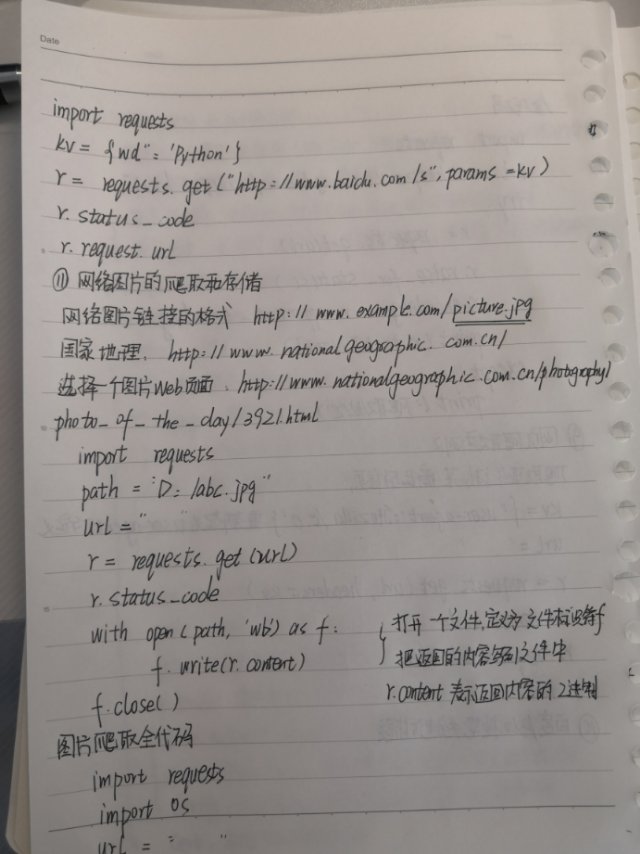 Date
import requests
kv = {wd": 'Python'}
r = requests.get("http://www.baidu.com/s", params =kv)
r.status_code
r.request.url
⑪ 网络图片的爬取和存储
网络图片链接的格式 http://www.example.com/picture.jpg
国家地理. http://www.nationalgeographic.com.cn/
选择一个图片Web页面. http://www.nationalgeographic.com.cn/photography/
photo_of_the_day/3921.html
import requests
path = "D:/abc.jpg"
url = " "
r = requests.get(url)
r.status_code
with open(path, 'wb') as f: 打开一个文件,定义为文件标识符f
f.write(r.content) 把返回的内容写到文件中
f.close() r.content 表示返回内容的2进制
图片爬取全代码
import requests
import os
url = " "